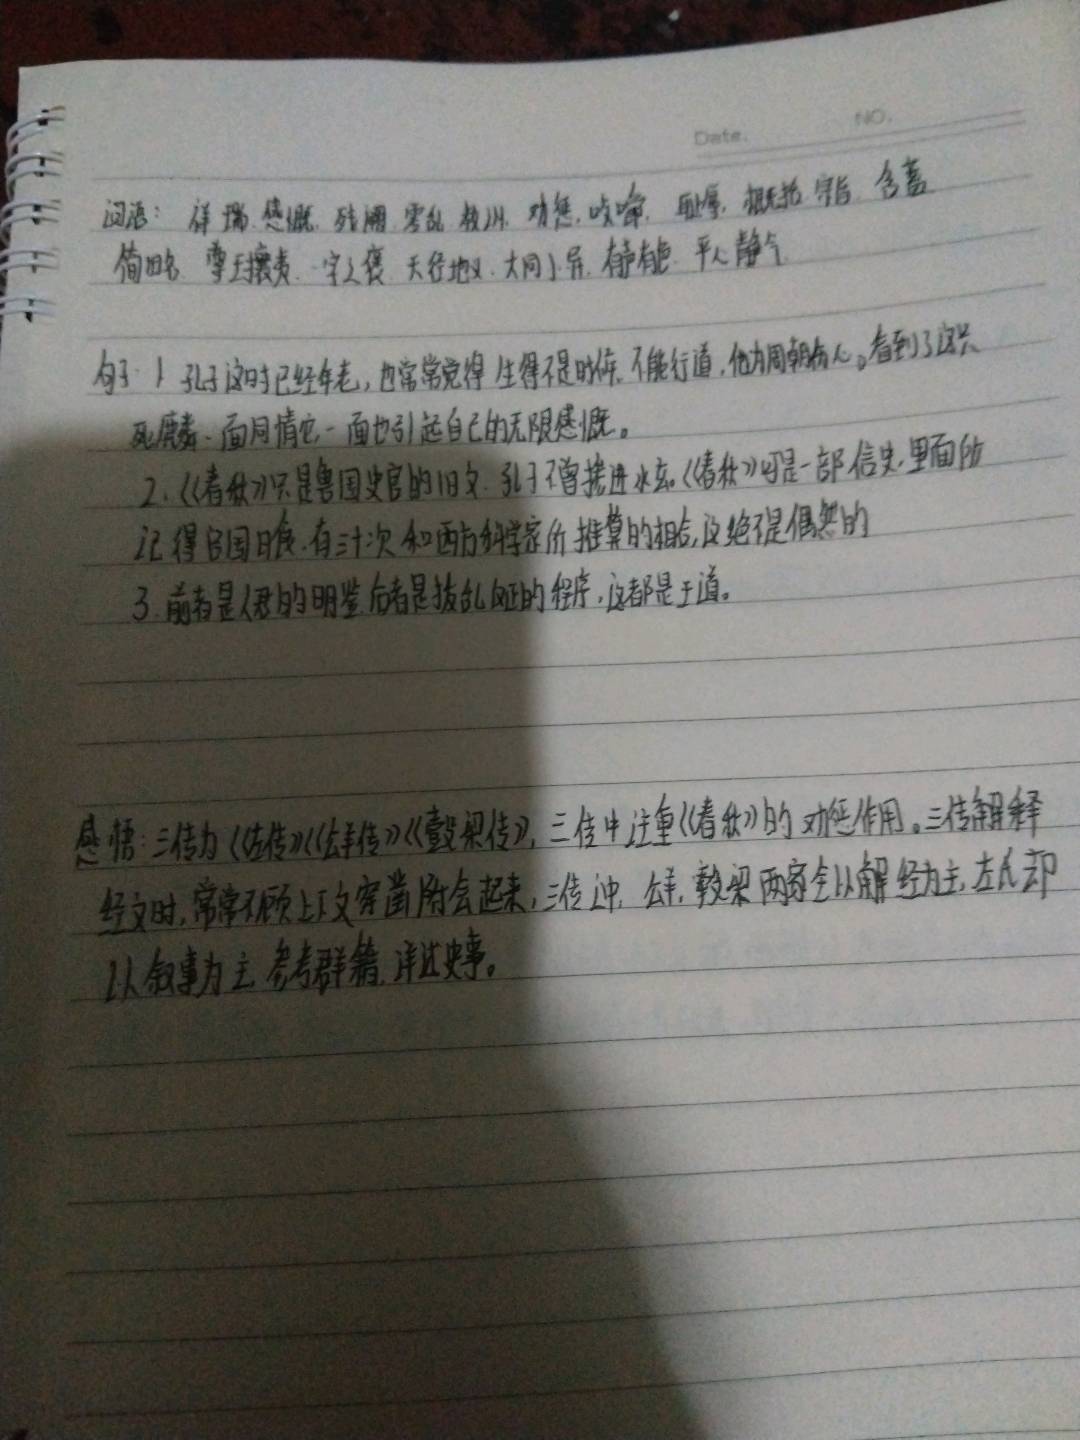 Date. NO.
词语：祥瑞 感慨 残阙 零乱 教训 劝惩 咬嚼 耻辱 概括 宗旨 含蓄
简略 尊王攘夷 一字之褒 天经地义 大同小异 有声有色 平心静气
句子 1 孔子这时已经年老，也常常觉得生得不是时候，不能行道，他为周朝伤心。看到了这只
死麒麟一面同情它一面也引起自己的无限感慨。
2、《春秋》只是鲁国史官的旧文 孔子不曾掺进水去。《春秋》可是一部信史，里面所
记得鲁国日食，有三十次和西方科学家所推算的相合，这绝不是偶然的
3. 前者是人君的明鉴 后者是拨乱反正的程序，这都是王道。
感悟：三传为《左传》《公羊传》《穀梁传》，三传中注重《春秋》的劝惩作用。三传解释
经文时，常常不顾上下文穿凿附会起来，三传之中，公羊，穀梁两家全以解经为主，左氏却
以叙事为主 参考群籍，详述史事。